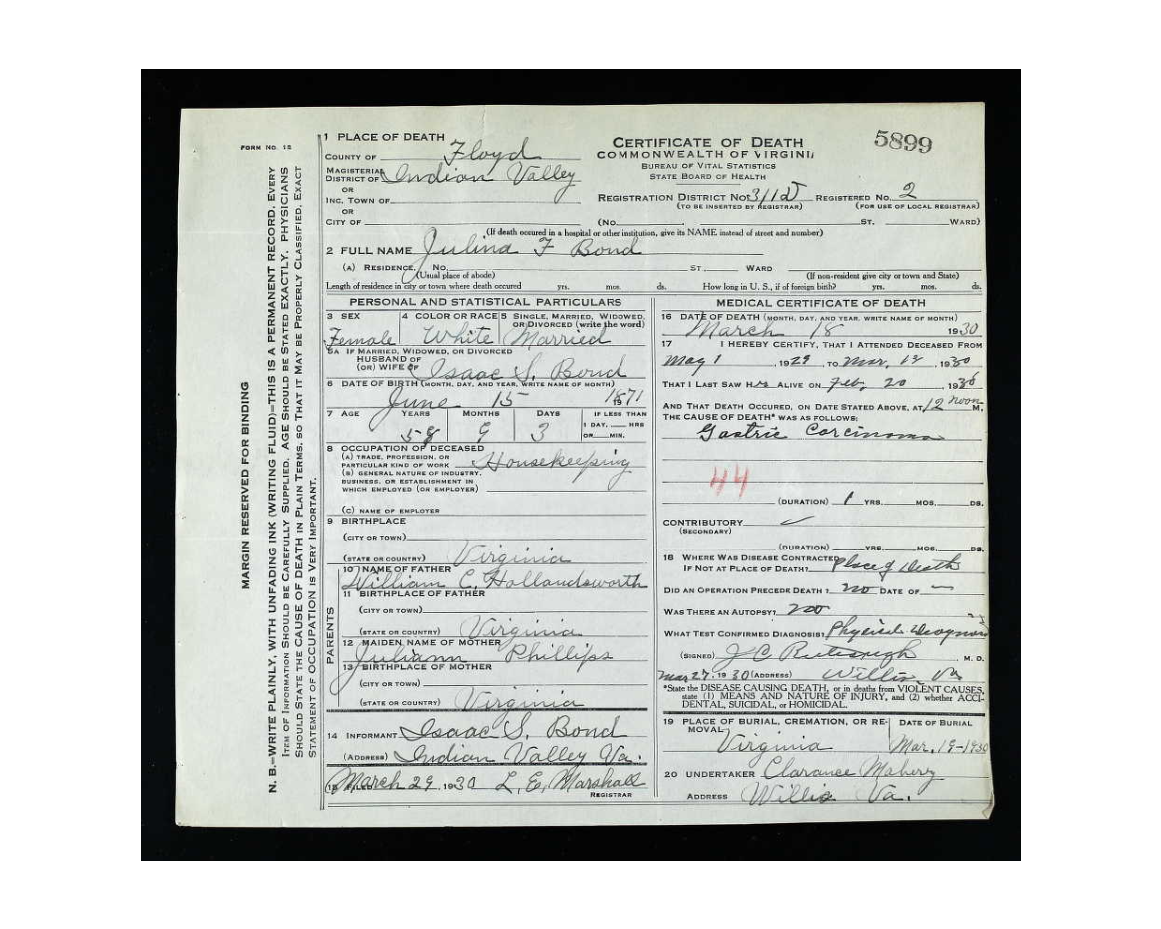 FORM NO. 12
MARGIN RESERVED FOR BINDING
N. B.—WRITE PLAINLY, WITH UNFADING INK (WRITING FLUID)—THIS IS A PERMANENT RECORD. EVERY
ITEM OF INFORMATION SHOULD BE CAREFULLY SUPPLIED. AGE SHOULD BE STATED EXACTLY. PHYSICIANS
SHOULD STATE THE CAUSE OF DEATH IN PLAIN TERMS, SO THAT IT MAY BE PROPERLY CLASSIFIED. EXACT
STATEMENT OF OCCUPATION IS VERY IMPORTANT.
1 PLACE OF DEATH
COUNTY OF Floyd
MAGISTERIAL
DISTRICT OF Indian Valley
OR
INC. TOWN OF
OR
CITY OF
CERTIFICATE OF DEATH
COMMONWEALTH OF VIRGINIA
BUREAU OF VITAL STATISTICS
STATE BOARD OF HEALTH
5899
REGISTRATION DISTRICT NO. 311D REGISTERED NO. 2
(TO BE INSERTED BY REGISTRAR) (FOR USE OF LOCAL REGISTRAR)
(No. ST. WARD)
(If death occured in a hospital or other institution, give its NAME instead of street and number)
2 FULL NAME Julina F Bond
(A) RESIDENCE. No. ST. WARD
(Usual place of abode) (If non-resident give city or town and State)
Length of residence in city or town where death occured yrs. mos. ds. How long in U. S., if of foreign birth? yrs. mos. ds.
PERSONAL AND STATISTICAL PARTICULARS
3 SEX 4 COLOR OR RACE 5 SINGLE, MARRIED, WIDOWED, OR DIVORCED (write the word)
Female White Married
5A IF MARRIED, WIDOWED, OR DIVORCED
HUSBAND OF
(OR) WIFE OF Isaac S. Bond
6 DATE OF BIRTH (MONTH, DAY, AND YEAR, WRITE NAME OF MONTH)
June 15 1871
7 AGE YEARS MONTHS DAYS IF LESS THAN
1 DAY, HRS
OR MIN.
58 9 3
8 OCCUPATION OF DECEASED
(A) TRADE, PROFESSION, OR
PARTICULAR KIND OF WORK Housekeeping
(B) GENERAL NATURE OF INDUSTRY,
BUSINESS, OR ESTABLISHMENT IN
WHICH EMPLOYED (OR EMPLOYER)
(C) NAME OF EMPLOYER
9 BIRTHPLACE
(CITY OR TOWN)
(STATE OR COUNTRY) Virginia
PARENTS
10 NAME OF FATHER
William C. Hollandsworth
11 BIRTHPLACE OF FATHER
(CITY OR TOWN)
(STATE OR COUNTRY) Virginia
12 MAIDEN NAME OF MOTHER
Juliann Phillips
13 BIRTHPLACE OF MOTHER
(CITY OR TOWN)
(STATE OR COUNTRY) Virginia
14 INFORMANT Isaac S. Bond
(ADDRESS) Indian Valley Va.
15 March 29, 1930 L. E. Marshall
REGISTRAR
MEDICAL CERTIFICATE OF DEATH
16 DATE OF DEATH (MONTH, DAY, AND YEAR, WRITE NAME OF MONTH)
March 18 1930
17 I HEREBY CERTIFY, THAT I ATTENDED DECEASED FROM
May 1, 1929, TO Mar. 1930
THAT I LAST SAW H ALIVE ON Feb, 20, 1930
AND THAT DEATH OCCURED, ON DATE STATED ABOVE, AT 12 noon M.
THE CAUSE OF DEATH* WAS AS FOLLOWS:
Gastric Carcinoma
44
(DURATION) 1 YRS. MOS. DS.
CONTRIBUTORY
(SECONDARY)
(DURATION) YRS. MOS. DS.
18 WHERE WAS DISEASE CONTRACTED
IF NOT AT PLACE OF DEATH? Place of Death
DID AN OPERATION PRECEDE DEATH? no DATE OF —
WAS THERE AN AUTOPSY? no
WHAT TEST CONFIRMED DIAGNOSIS? Physical
(SIGNED) J C M. D.
Mar 27, 1930 (ADDRESS) Willis, Va
*State the DISEASE CAUSING DEATH, or in deaths from VIOLENT CAUSES,
state (1) MEANS AND NATURE OF INJURY, and (2) whether ACCI-
DENTAL, SUICIDAL, or HOMICIDAL.
19 PLACE OF BURIAL, CREMATION, OR RE-
MOVAL DATE OF BURIAL
Virginia Mar. 19-1930
20 UNDERTAKER Clarance
ADDRESS Willis Va.